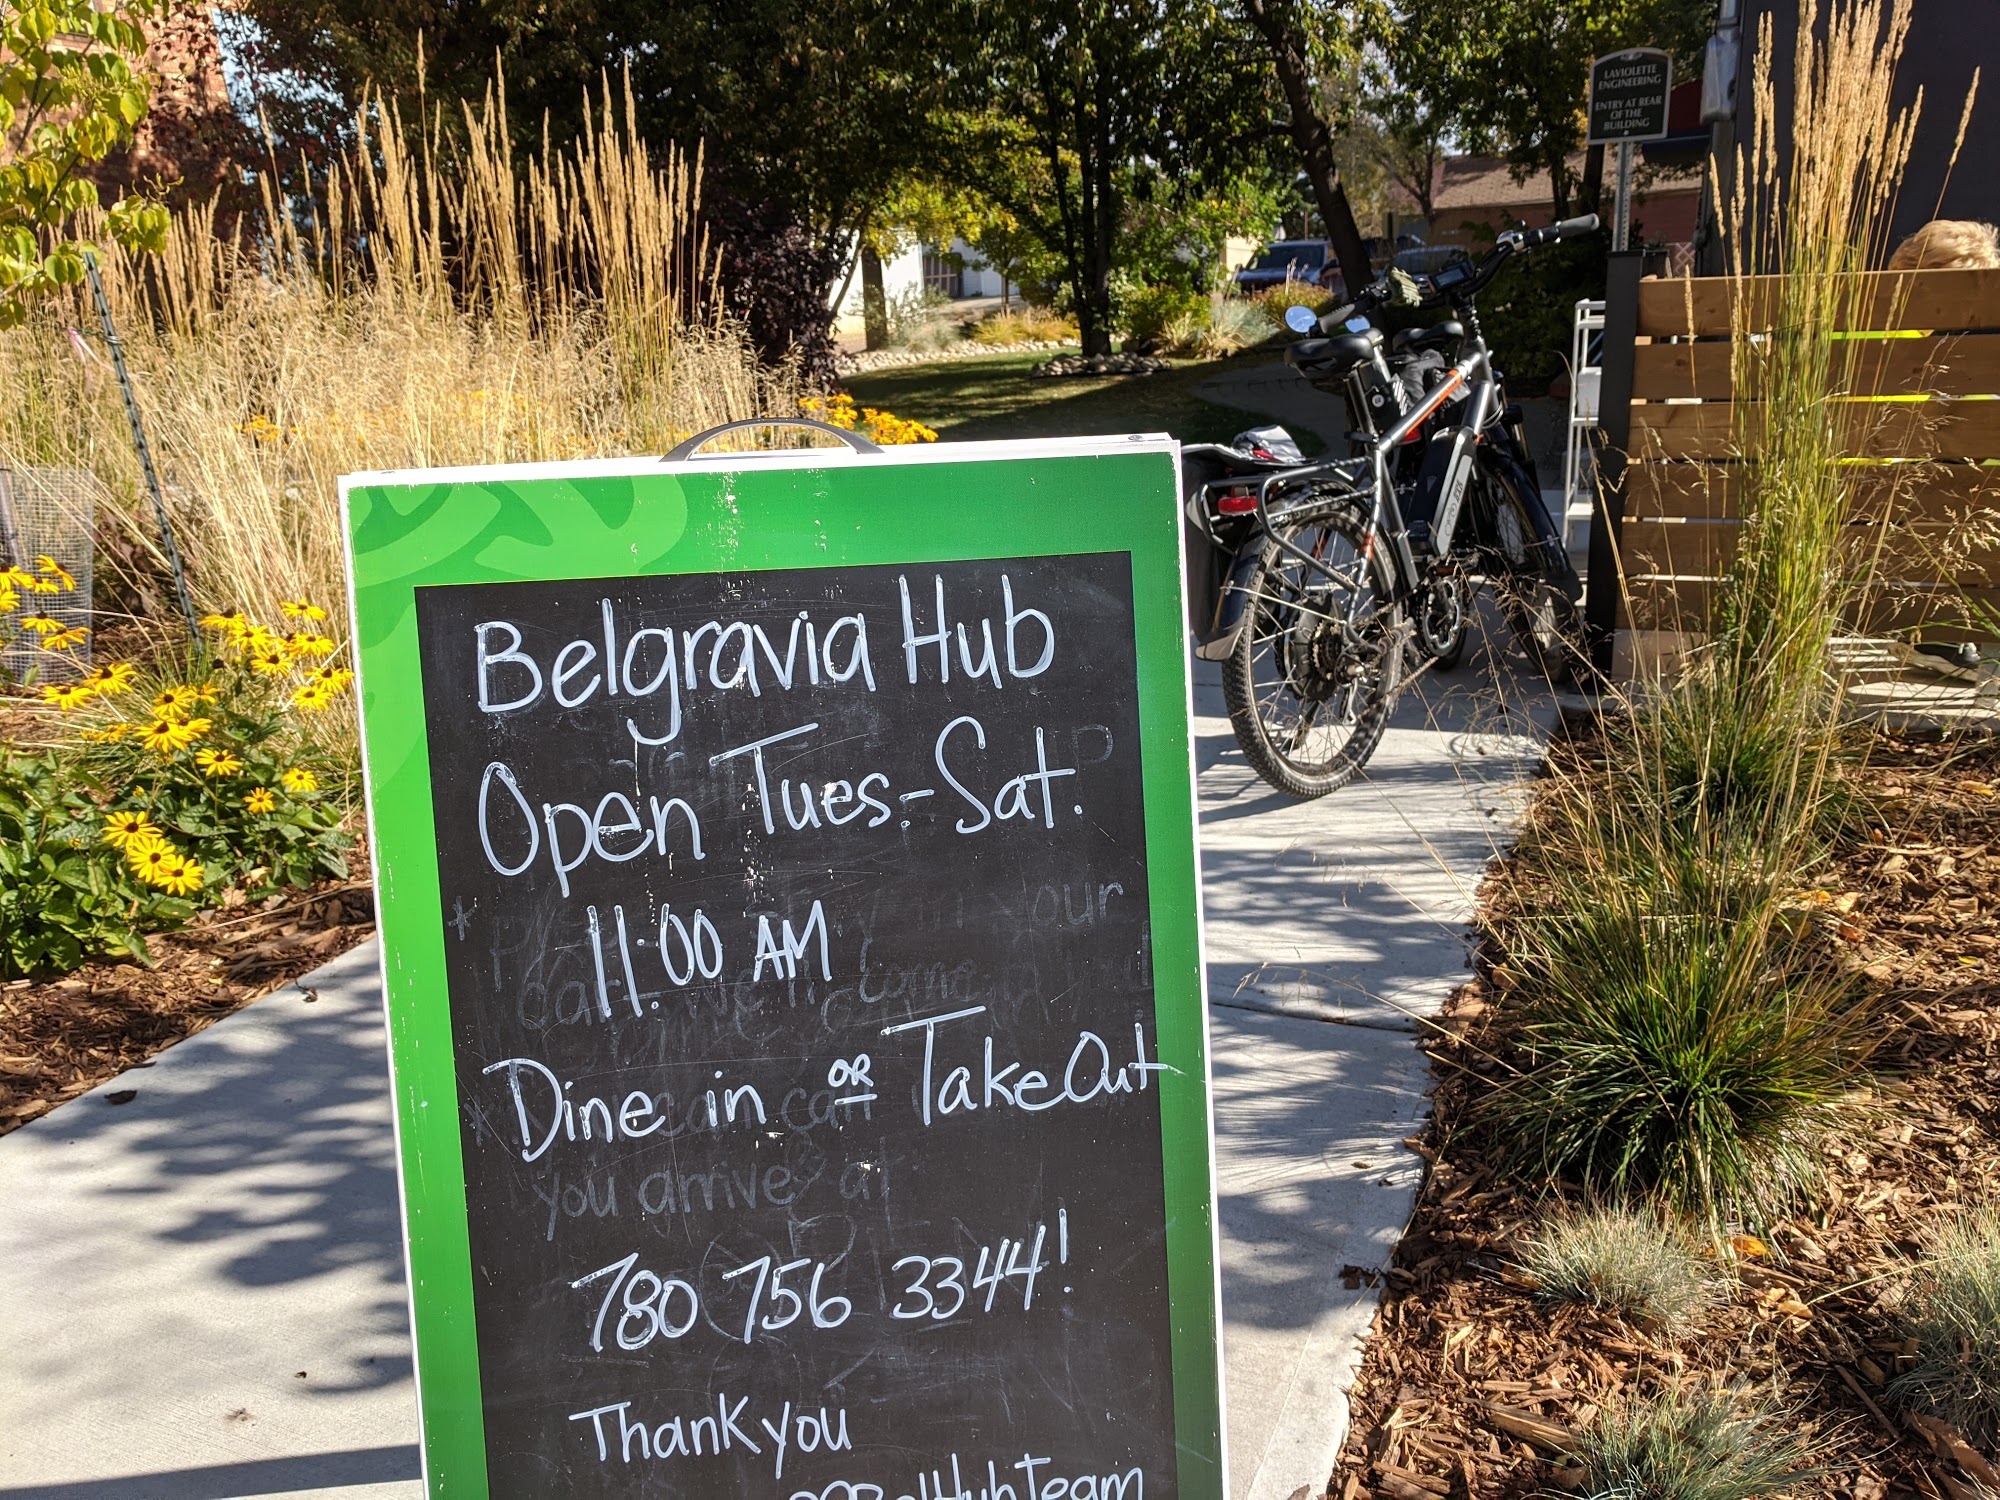 LAVIOLETTE
ENGINEERING
ENTRY AT REAR
OF THE
BUILDING
Belgravia Hub
Open Tues.-Sat.
11:00 AM
Dine in OR TakeOut
you arrive at
780 756 3344!
Thank you
BelHubTeam